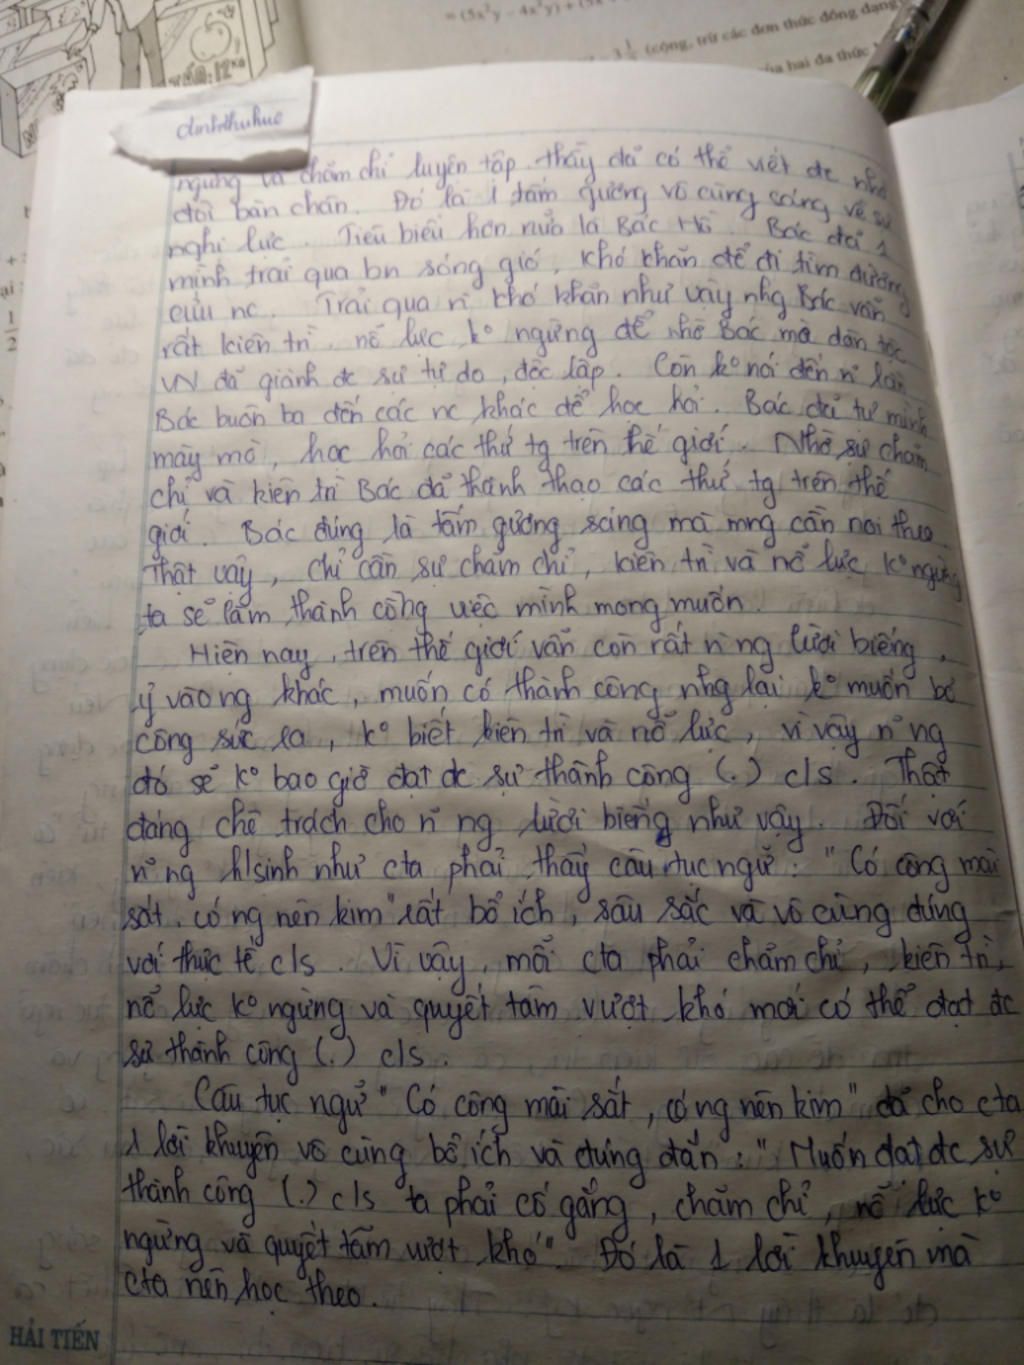 = (5x²y - 4x²y) + (5x
(cộng, trừ các đơn thức đồng dạng
của hai đa thức
12kg
dinhthuhue
ngừng và chăm chỉ luyện tập thầy đã có thể viết đc nhờ
đôi bàn chân. Đó là 1 tấm gương vô cùng sáng về sự
nghị lực. Tiêu biểu hơn nữa là Bác Hồ. Bác đã 1
mình trải qua bn sóng gió, khó khăn để đi tìm đường
cứu nc. Trải qua n~ khó khăn như vậy nhg Bác vẫn
rất kiên trì, nỗ lực k° ngừng để nhờ Bác mà dân tộc
VN đã giành đc sự tự do, độc lập. Còn k° nói đến n~ lần
Bác buôn ba đến các nc khác để học hỏi. Bác đã tự mình
mày mò, học hỏi các thứ tg trên thế giới. Nhờ sự chăm
chỉ và kiên trì Bác đã thành thạo các thứ tg trên thế
giới. Bác đúng là tấm gương sáng mà mng cần noi theo
Thật vậy, chỉ cần sự chăm chỉ, kiên trì và nỗ lực k° ngừng
ta sẽ làm thành công việc mình mong muốn.
Hiện nay, trên thế giới vẫn còn rất n` ng lười biếng,
ỷ vào ng khác, muốn có thành công nhg lại k° muốn bỏ
công sức ra, k° biết kiên trì và nỗ lực, vì vậy n~ ng
đó sẽ k° bao giờ đạt đc sự thành công (.) c/s. Thật
đáng chê trách cho n~ ng lười biếng như vậy. Đối với
n~ ng h/sinh như cta phải thấy câu tục ngữ: "Có công mài
sắt, có ng nên kim" rất bổ ích, sâu sắc và vô cùng đúng
với thực tế c/s. Vì vậy, mỗi cta phải chăm chỉ, kiên trì,
nỗ lực k° ngừng và quyết tâm vượt khó mới có thể đạt đc
sự thành công (.) c/s.
Câu tục ngữ "Có công mài sắt, có ng nên kim" đã cho cta
1 lời khuyên vô cùng bổ ích và đúng đắn: "Muốn đạt đc sự
thành công (.) c/s ta phải cố gắng, chăm chỉ, nỗ lực k°
ngừng và quyết tâm vượt khó". Đó là 1 lời khuyên mà
cta nên học theo.
HẢI TIẾN